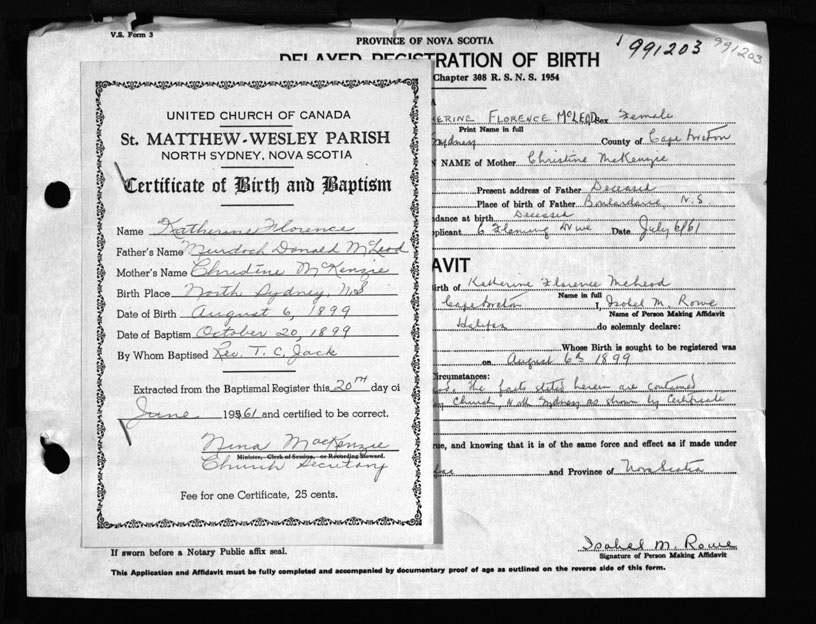 V.S. Form 3
PROVINCE OF NOVA SCOTIA
991203
991203
DELAYED REGISTRATION OF BIRTH
Chapter 308 R. S. N. S. 1954
UNITED CHURCH OF CANADA
St. MATTHEW-WESLEY PARISH
NORTH SYDNEY, NOVA SCOTIA
Certificate of Birth and Baptism
Name Katherine Florence
Father's Name Murdoch Donald McLeod
Mother's Name Christine McKenzie
Birth Place North Sydney, N.S
Date of Birth August 6, 1899
Date of Baptism October 20, 1899
By Whom Baptised Rev. T. C. Jack
Extracted from the Baptismal Register this 20TH day of
June 1961 and certified to be correct.
Nina MacKenzie
Minister, Clerk of Session, or Recording Steward.
Church Secretary
Fee for one Certificate, 25 cents.
ERINE FLORENCE McLEOD Sex Female
Print Name in full
Sydney County of Cape Breton
N NAME of Mother Christine McKenzie
Present address of Father Deceased
Place of birth of Father Boulardarie, N.S
dance at birth Deceased
plicant 6 Fleming Drive Date July 6/61
AVIT
irth of Katherine Florence McLeod
Name in full
Cape Breton I, Isabel M. Rowe
Name of Person Making Affidavit
Halifax do solemnly declare:
Whose Birth is sought to be registered was
on August 6th 1899
ircumstances:
the facts stated herein are contained
Church, North Sydney as shown by Certificate
rue, and knowing that it is of the same force and effect as if made under
and Province of Nova Scotia
Isabel M. Rowe
Signature of Person Making Affidavit
If sworn before a Notary Public affix seal.
This Application and Affidavit must be fully completed and accompanied by documentary proof of age as outlined on the reverse side of this form.